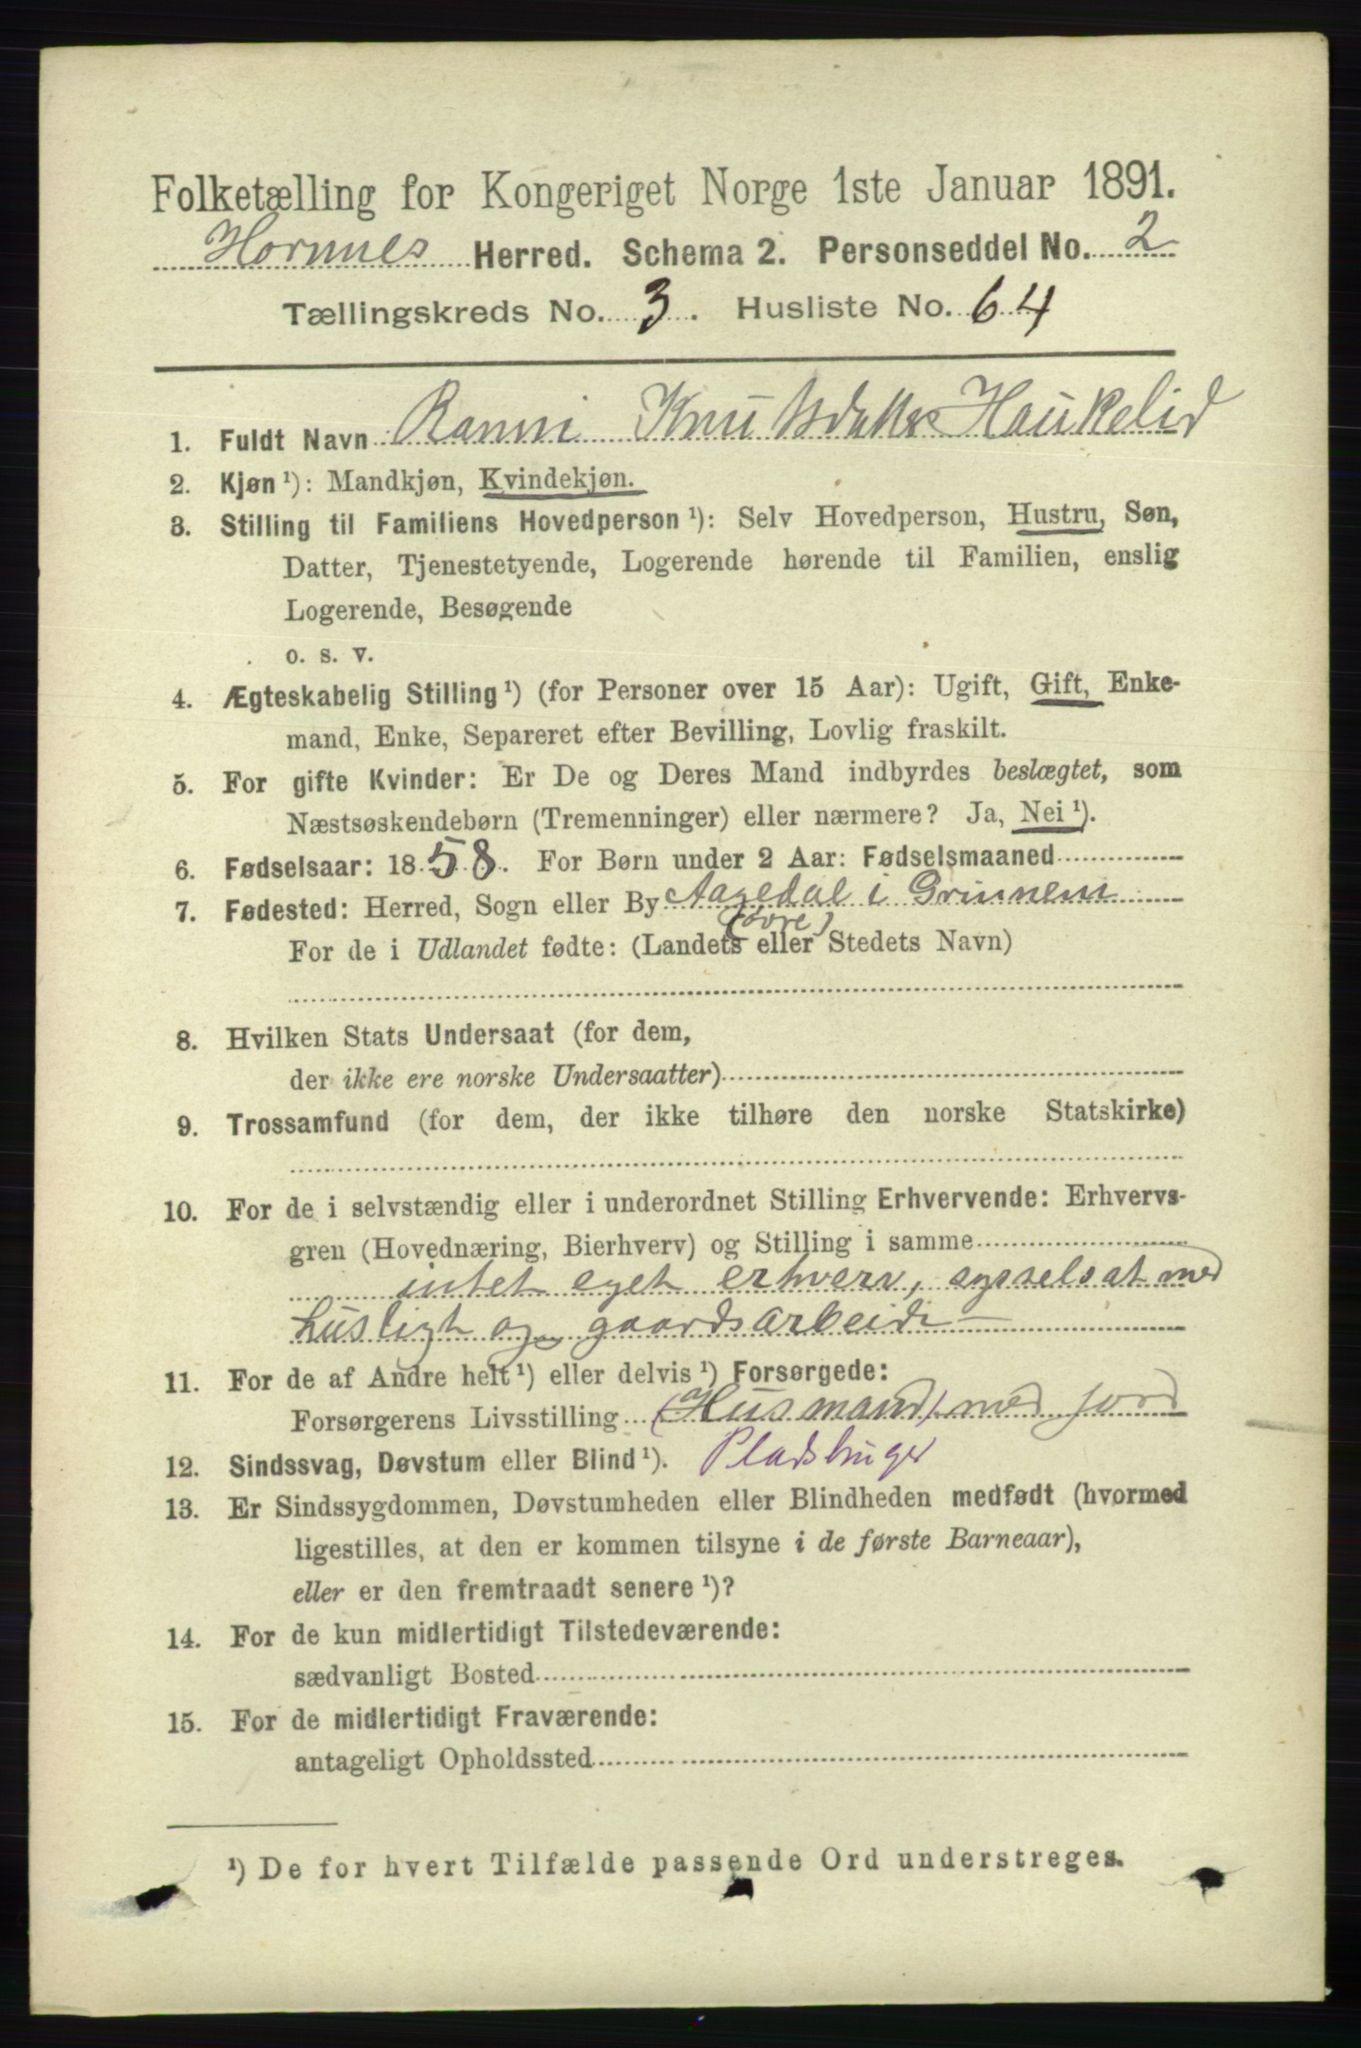 Folketælling for Kongeriget Norge 1ste Januar 1891.
Hornnes Herred. Schema 2. Personseddel No. 2
Tællingskreds No. 3. Husliste No. 64
1. Fuldt Navn Ranni Knutsdatter Haukelid
2. Kjøn ¹): Mandkjøn, Kvindekjøn.
3. Stilling til Familiens Hovedperson ¹): Selv Hovedperson, Hustru, Søn,
Datter, Tjenestetyende, Logerende hørende til Familien, enslig
Logerende, Besøgende
o. s. v.
4. Ægteskabelig Stilling ¹) (for Personer over 15 Aar): Ugift, Gift, Enke-
mand, Enke, Separeret efter Bevilling, Lovlig fraskilt.
5. For gifte Kvinder: Er De og Deres Mand indbyrdes beslægtet, som
Næstsøskendebørn (Tremenninger) eller nærmere? Ja, Nei ¹).
6. Fødselsaar: 1858. For Børn under 2 Aar: Fødselsmaaned
7. Fødested: Herred, Sogn eller By Aagedal i Grinnem
(øvre)
For de i Udlandet fødte: (Landets eller Stedets Navn)
8. Hvilken Stats Undersaat (for dem,
der ikke ere norske Undersaatter)
9. Trossamfund (for dem, der ikke tilhøre den norske Statskirke)
10. For de i selvstændig eller i underordnet Stilling Erhvervende: Erhvervs-
gren (Hovednæring, Bierhverv) og Stilling i samme
intet eget erhverv, sysselsat med
husligt og gaardsarbeide
11. For de af Andre helt ¹) eller delvis ¹) Forsørgede:
Forsørgerens Livsstilling (Husmand) med jord
12. Sindssvag, Døvstum eller Blind ¹). Pladsbruger
13. Er Sindssygdommen, Døvstumheden eller Blindheden medfødt (hvormed
ligestilles, at den er kommen tilsyne i de første Barneaar),
eller er den fremtraadt senere ¹)?
14. For de kun midlertidigt Tilstedeværende:
sædvanligt Bosted
15. For de midlertidigt Fraværende:
antageligt Opholdssted
¹) De for hvert Tilfælde passende Ord understreges.